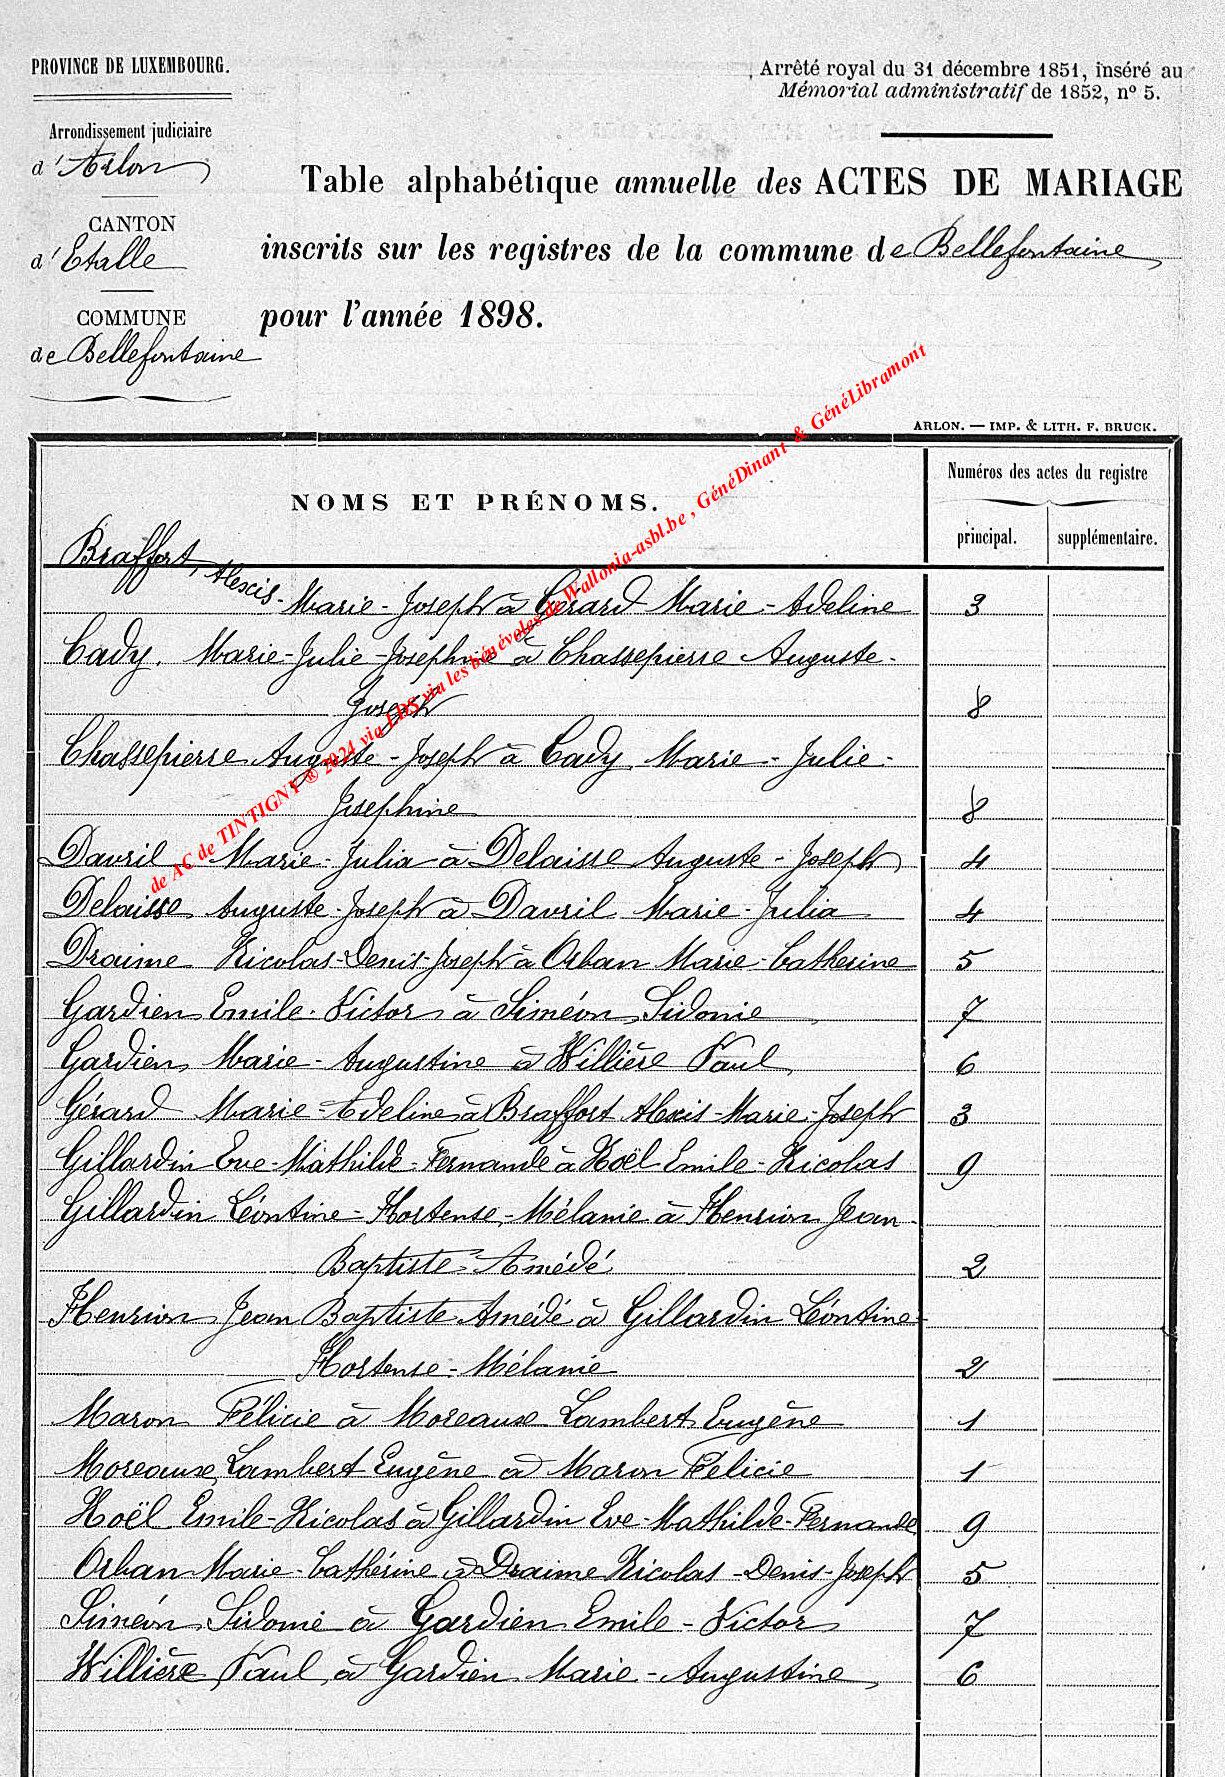 PROVINCE DE LUXEMBOURG.
Arrondissement judiciaire
d'Arlon
CANTON
d'Etalle
COMMUNE
de Bellefontaine
Arrêté royal du 31 décembre 1851, inséré au
Mémorial administratif de 1852, nº 5.
Table alphabétique annuelle des ACTES DE MARIAGE
inscrits sur les registres de la commune de Bellefontaine
pour l'année 1898.
ARLON. — IMP. & LITH. F. BRUCK.
NOMS ET PRÉNOMS.
Numéros des actes du registre
principal.
supplémentaire.
Braffort, Alexis-Marie-Joseph à Gérard Marie-Adeline 3
Cady. Marie-Julie-Joséphine à Chassepierre Auguste-
Joseph 8
Chassepierre Auguste-Joseph à Cady Marie-Julie-
Josephine 8
Davril Marie-Julia à Delaisse Auguste-Joseph 4
Delaisse Auguste-Joseph à Davril Marie-Julia 4
Draime Nicolas-Denis-Joseph à Orban Marie-Catherine 5
Gardien Emile-Victor à Siméon Sidonie 7
Gardien Marie-Augustine à Willière Paul 6
Gérard Marie-Adeline à Braffort Alexis-Marie-Joseph 3
Gillardin Eve-Mathilde-Fernande à Noël Emile-Nicolas 9
Gillardin Léontine-Hortense-Mélanie à Henrion Jean-
Baptiste-Amédé 2
Henrion Jean Baptiste-Amédé à Gillardin Léontine-
Hortense-Mélanie 2
Maron Félicie à Moreaux Lambert Eugène 1
Moreaux Lambert Eugène à Maron Félicie 1
Noël Emile-Nicolas à Gillardin Eve-Mathilde-Fernande 9
Orban Marie-Cathérine à Draime Nicolas-Denis-Joseph 5
Siméon Sidonie à Gardien Emile-Victor 7
Willière Paul à Gardien Marie-Augustine 6
de AC de TINTIGNY ® 2024 via FDS via les bénévoles de Wallonia-asbl.be, GénéDinant & GénéLibramont